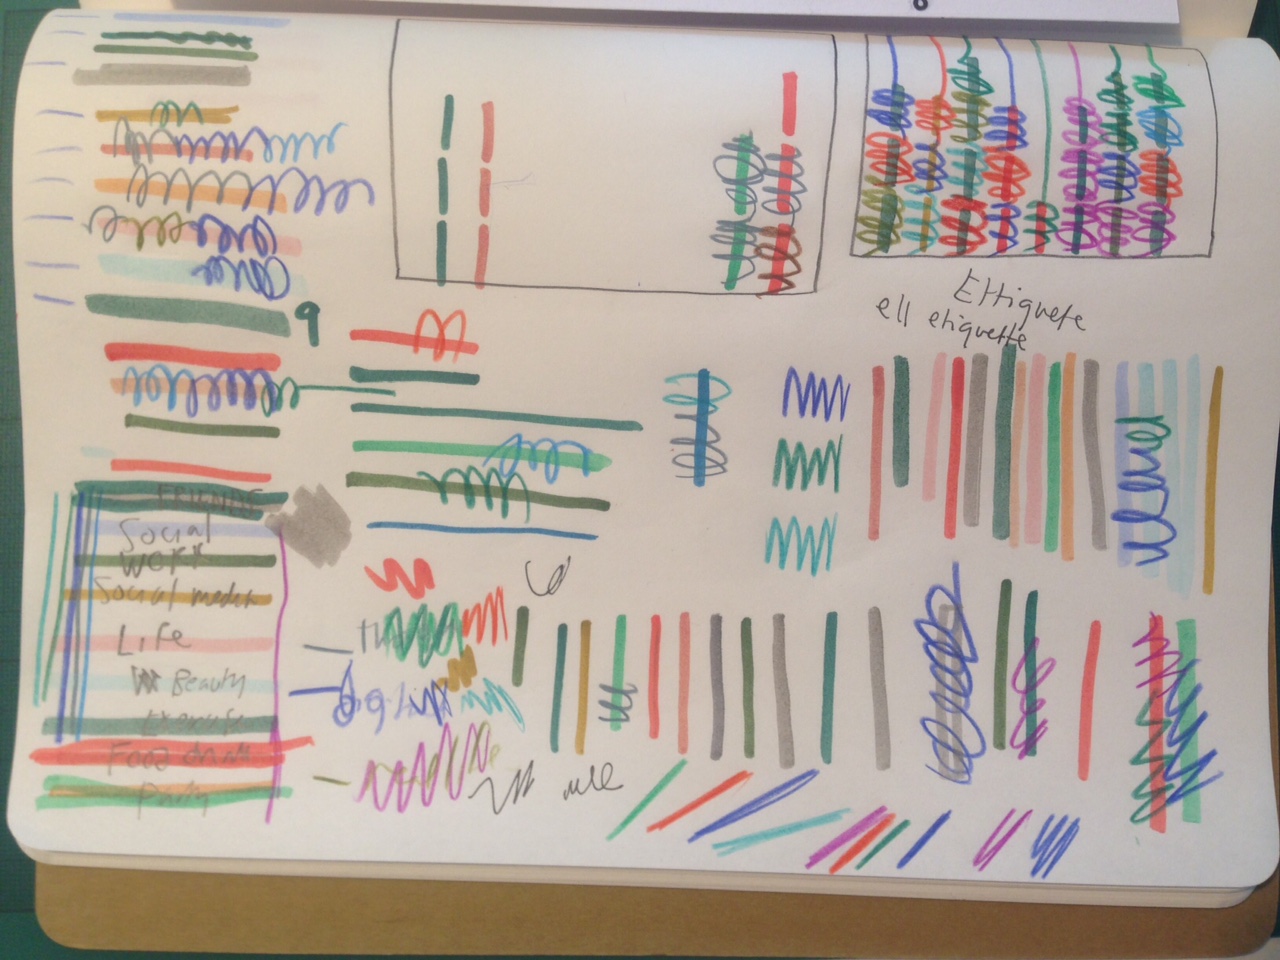 9
Ettiquete
ell etiquette
FRIENDS
Social
Work
Social media
Life
Beauty
Exercise
Food drink
Party